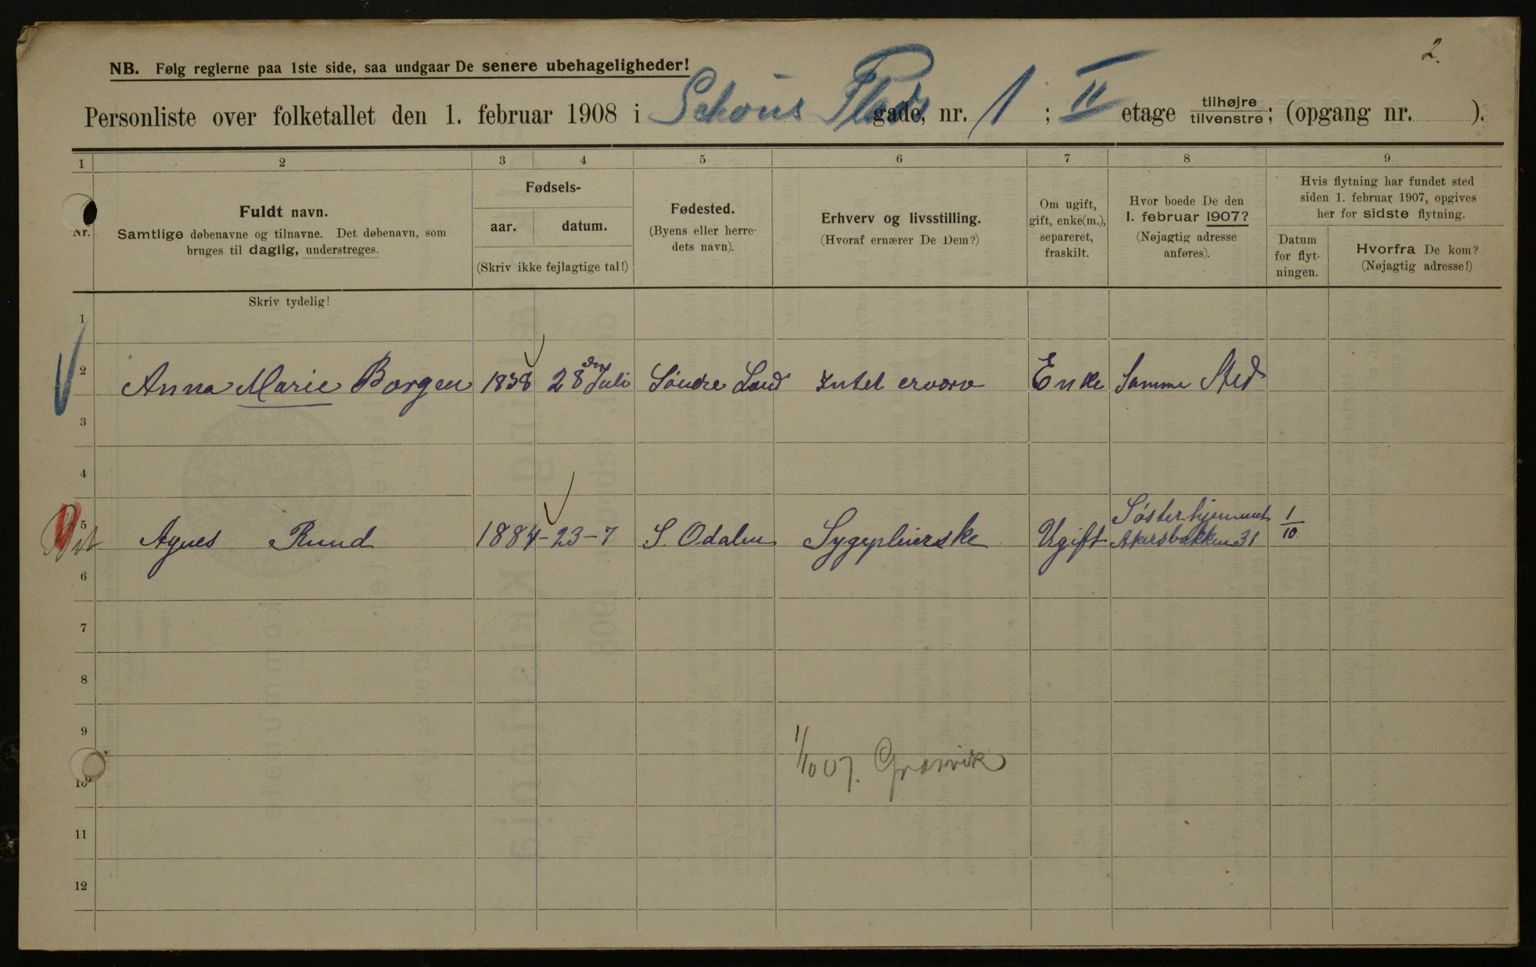 2.
NB. Følg reglerne paa 1ste side, saa undgaar De senere ubehageligheder!
Personliste over folketallet den 1. februar 1908 i Schous Plads gade, nr. 1 ; II etage tilhøjre tilvenstre; (opgang nr. ).
1 2 3 4 5 6 7 8 9
Nr.
Fuldt navn.
Samtlige døbenavne og tilnavne. Det døbenavn, som
bruges til daglig, understreges.
Fødsels-
aar. datum.
(Skriv ikke fejlagtige tal!)
Fødested.
(Byens eller herre-
dets navn).
Erhverv og livsstilling.
(Hvoraf ernærer De Dem?)
Om ugift,
gift, enke(m.),
separeret,
fraskilt.
Hvor boede De den
1. februar 1907?
(Nøjagtig adresse
anføres).
Hvis flytning har fundet sted
siden 1. februar 1907, opgives
her for sidste flytning.
Datum
for flyt-
ningen.
Hvorfra De kom?
(Nøjagtig adresse!)
Skriv tydelig!
1
2 Anna Marie Borgen 1838 28 den Juli Søndre Land Intet erværv Enke Samme Sted
3
4
5 Agnes Ruud 1884 - 23 - 7 S. Odalen Sygepleierske Ugift Søsterhjemmet Akersbakken 31 1/10
6
7
8
9
1/10 07. Grønvik
10
11
12